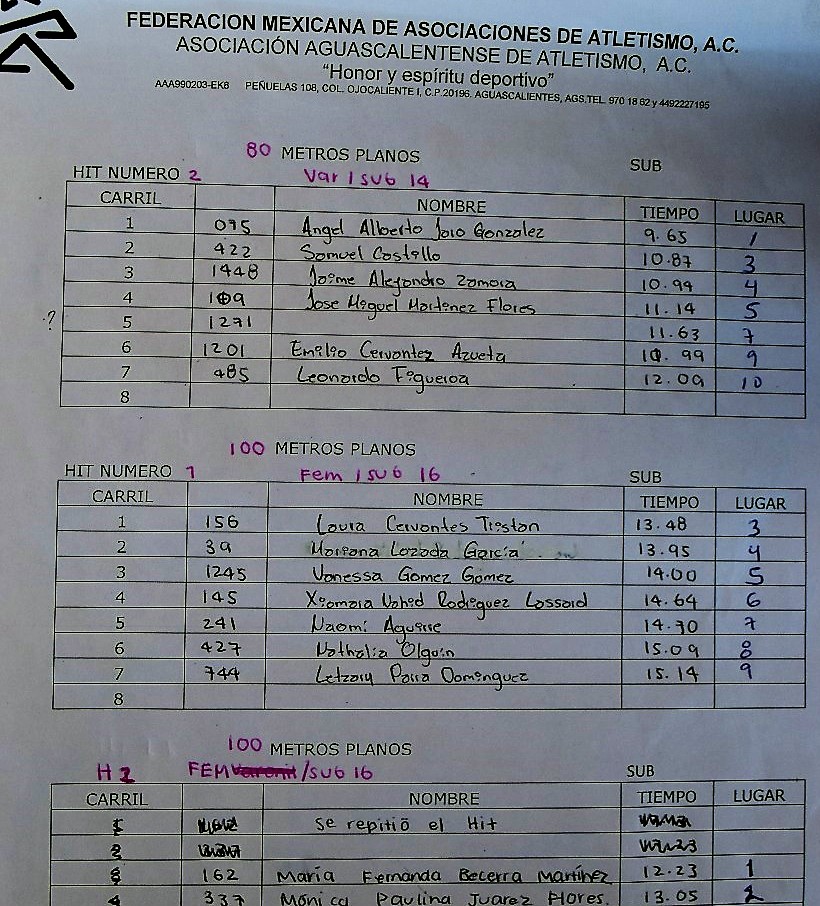 FEDERACION MEXICANA DE ASOCIACIONES DE ATLETISMO, A.C.
ASOCIACIÓN AGUASCALENTENSE DE ATLETISMO, A.C.
"Honor y espíritu deportivo"
AAA990203-EK6 PEÑUELAS 108, COL. OJOCALIENTE I, C.P 20196. AGUASCALIENTES, AGS.TEL. 970 18 62 y 4492227195
80 METROS PLANOS SUB
HIT NUMERO 2 Var / sub 14
CARRIL NOMBRE TIEMPO LUGAR
1 075 Angel Alberto Gonzalez 9.65 1
2 422 Samuel Costillo 10.87 3
3 1448 Jaime Alejandro Zamora 10.94 4
4 109 Jose Miguel Martinez Flores 11.14 5
? 5 1271 11.63 7
6 1201 Emilio Cervantez Azueta 99 9
7 485 Leonardo Figueroa 12.09 10
8
100 METROS PLANOS
HIT NUMERO 1 Fem / sub 16 SUB
CARRIL NOMBRE TIEMPO LUGAR
1 156 Laura Cervantes Tristan 13.48 3
2 39 Mariana Lozada García 13.95 4
3 1245 Vanessa Gomez Gomez 14.00 5
4 145 Xiomara Rodriguez 14.64 6
5 241 Naomi Aguirre 14.70 7
6 427 Nathalia Olguin 15.09 8
7 744 Letzary Parra Dominguez 15.14 9
8
100 METROS PLANOS
H 2 FEM /SUB 16 SUB
CARRIL NOMBRE TIEMPO LUGAR
Se repitió el Hit
162 María Fernanda Becerra Martínez 12.23 1
4 337 Mónica Paulina Juarez Flores. 13.05 2